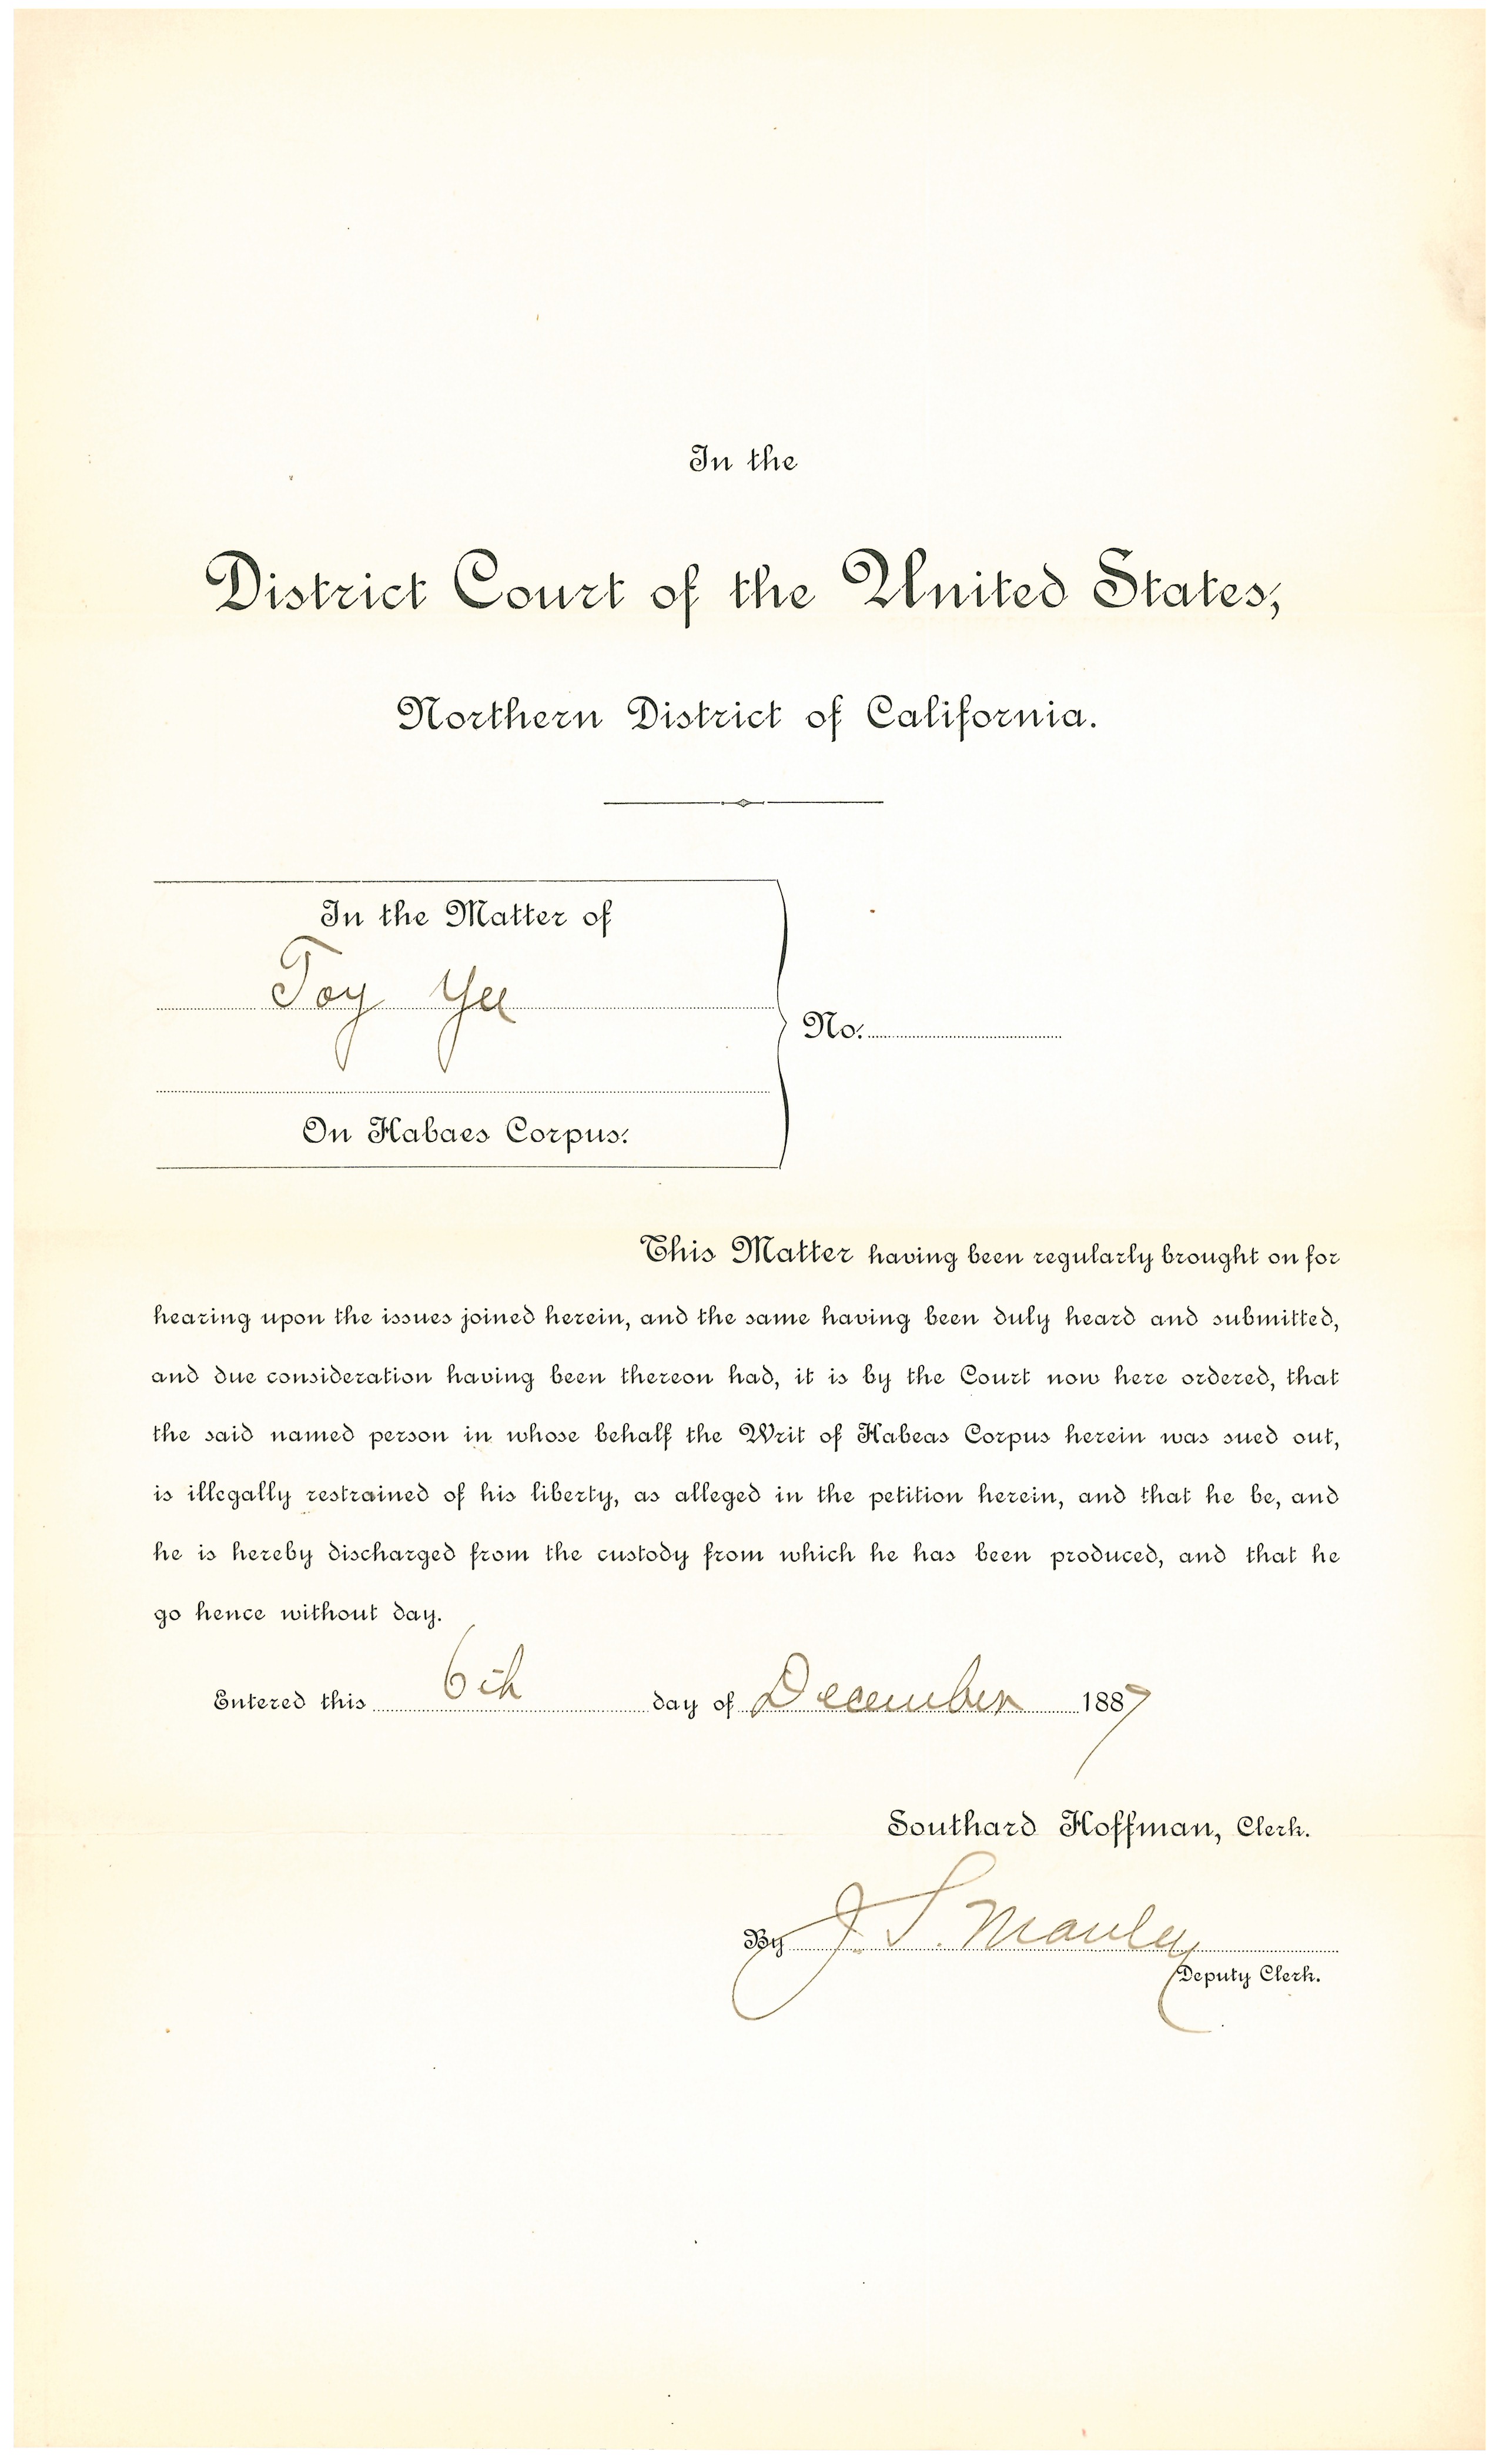 In the
District Court of the United States,
Northern District of California.
In the Matter of
Toy Yee
No.
On Habaes Corpus.
This Matter having been regularly brought on for
hearing upon the issues joined herein, and the same having been duly heard and submitted,
and due consideration having been thereon had, it is by the Court now here ordered, that
the said named person in whose behalf the Writ of Habeas Corpus herein was sued out,
is illegally restrained of his liberty, as alleged in the petition herein, and that he be, and
he is hereby discharged from the custody from which he has been produced, and that he
go hence without day.
Entered this 6th day of December 1887
Southard Hoffman, Clerk.
By J. S. Manley
Deputy Clerk.